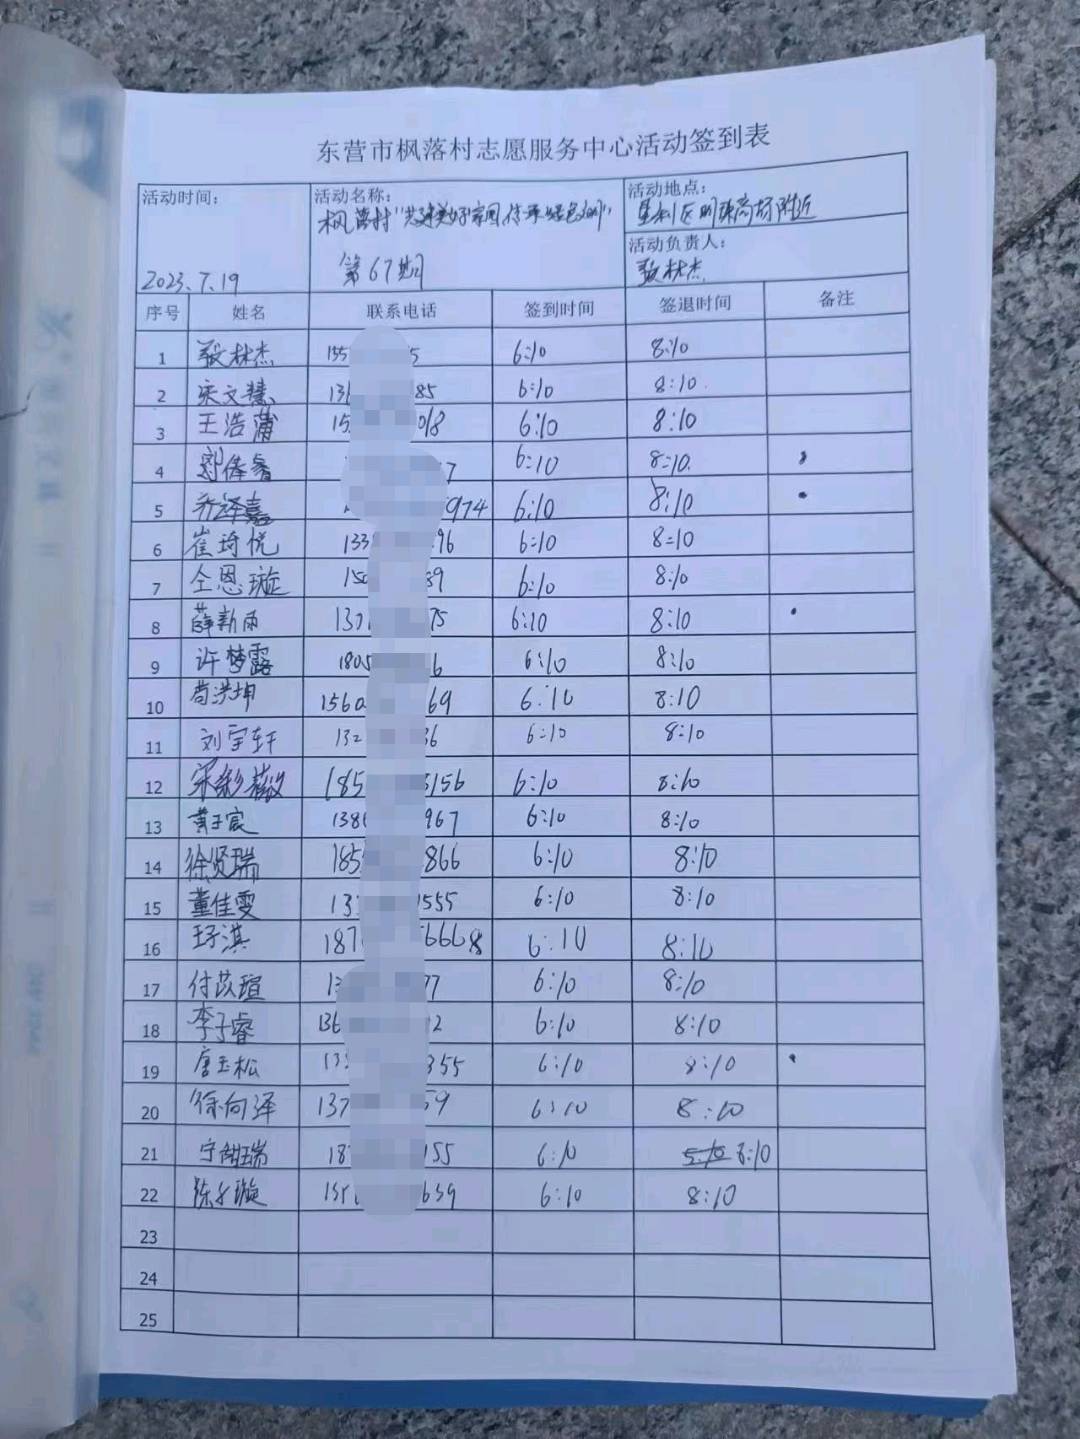 东营市枫落村志愿服务中心活动签到表
活动时间: 活动名称: 活动地点:
枫落村"共建美好家园 传承红色" 垦利区 附近
活动负责人:
2023.7.19 第67期 林杰
序号 姓名 联系电话 签到时间 签退时间 备注
1 林杰 155 5 6:10 8:10
2 宋文慧 136 85 6:10 8:10
3 王浩蒲 15 018 6:10 8:10
4 7 6:10 8:10
5 乔泽嘉 974 6:10 8:10
6 崔琦悦 133 96 6:10 8:10
7 仝恩璇 150 39 6:10 8:10
8 薛新雨 137 75 6:10 8:10
9 许梦露 1805 6 6:10 8:10
10 苟洪坤 1560 69 6:10 8:10
11 刘宇轩 132 36 6:10 8:10
12 宋彩薇 185 3156 6:10 8:10
13 黄子宸 138 967 6:10 8:10
14 徐贤瑞 185 866 6:10 8:10
15 董佳雯 13 1555 6:10 8:10
16 王子淇 187 6668 6:10 8:10
17 付苡瑄 13 77 6:10 8:10
18 李子睿 136 2 6:10 8:10
19 唐玉松 13 355 6:10 8:10
20 徐向泽 137 59 6:10 8:10
21 瑞 18 155 6:10 8:10
22 陈 璇 639 6:10 8:10
23
24
25